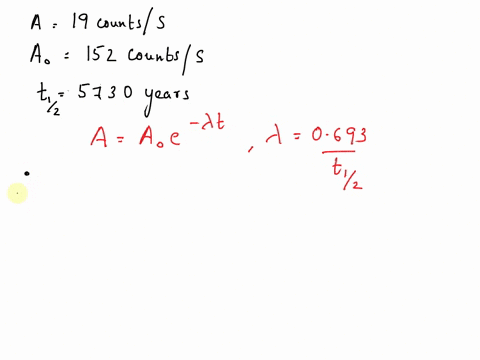 A = 19 counts/s
A₀ = 152 counts/s
t₁/₂ = 5730 years
A = A₀ e^(-λt) , λ = 0.693/t₁/₂